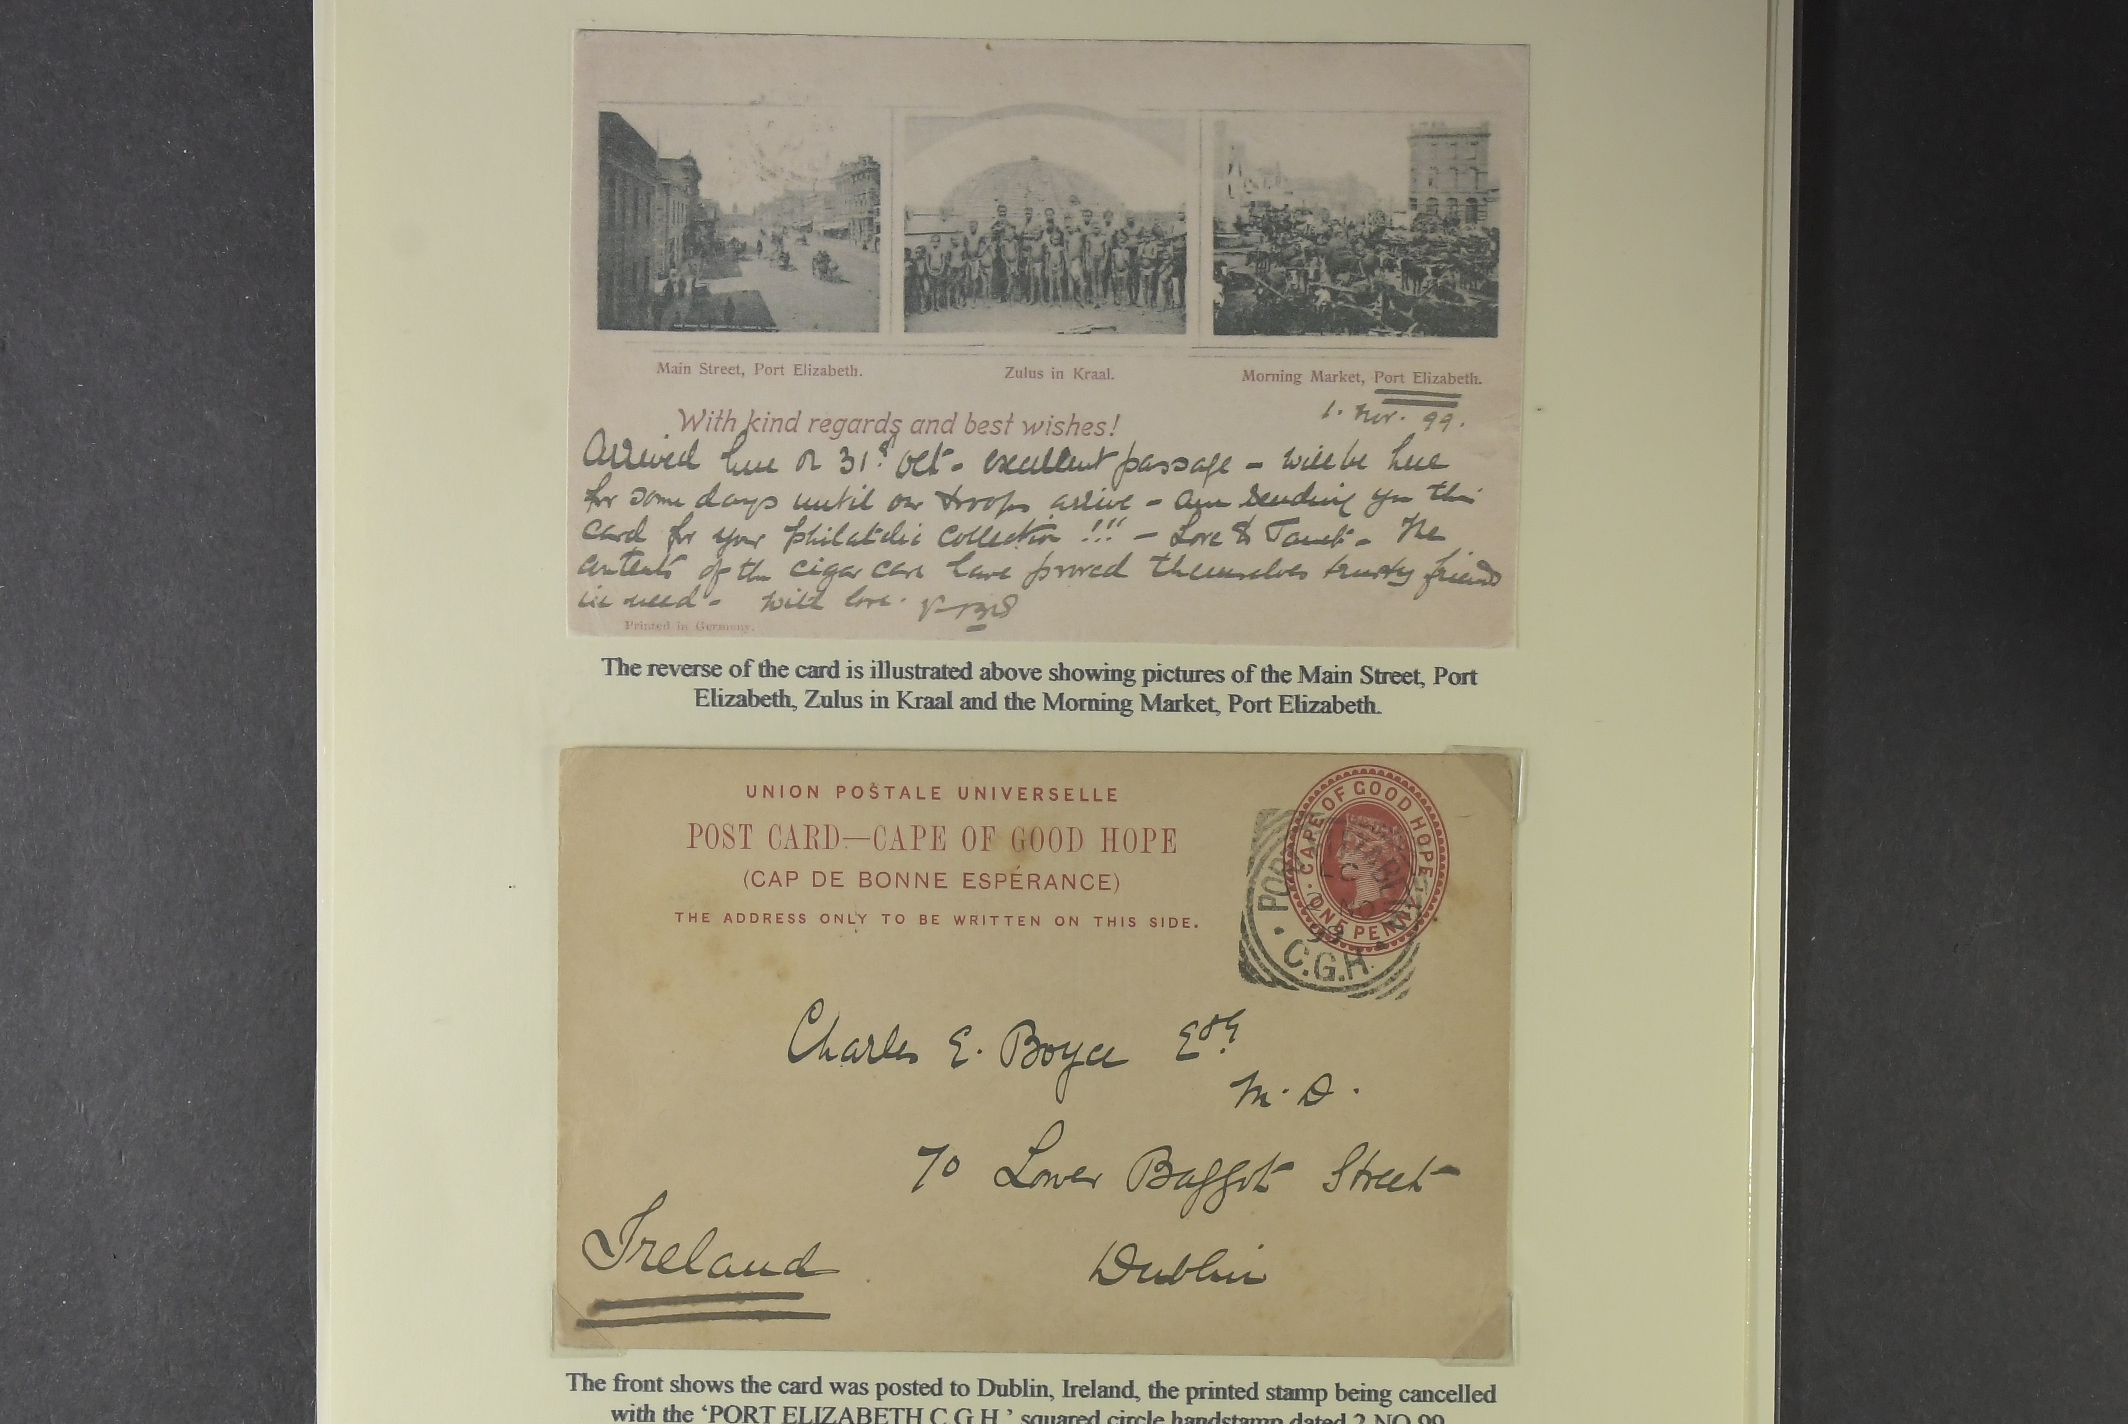 Main Street, Port Elizabeth.
Zulus in Kraal.
Morning Market, Port Elizabeth.
1. Nov. 99.
With kind regards and best wishes!
Arrived here on 31st Oct - excellent passage - Will be here
for some days until our troops arrive - am sending you this
card for your philatelic collection !!! - Love to Janet - The
contents of the cigar case have proved themselves trusty friends
in need - With love.
Printed in Germany.
The reverse of the card is illustrated above showing pictures of the Main Street, Port
Elizabeth, Zulus in Kraal and the Morning Market, Port Elizabeth.
UNION POSTALE UNIVERSELLE
POST CARD—CAPE OF GOOD HOPE
(CAP DE BONNE ESPÉRANCE)
THE ADDRESS ONLY TO BE WRITTEN ON THIS SIDE.
CAPE OF GOOD HOPE
ONE PENNY
PORT ELIZABETH
NO
99
C.G.H.
Charles E. Boyce Esq.
M.D.
70 Lower Baggot Street
Ireland
Dublin
The front shows the card was posted to Dublin, Ireland, the printed stamp being cancelled
with the ‘PORT ELIZABETH C.G.H.’ squared circle handstamp dated 2 NO 99